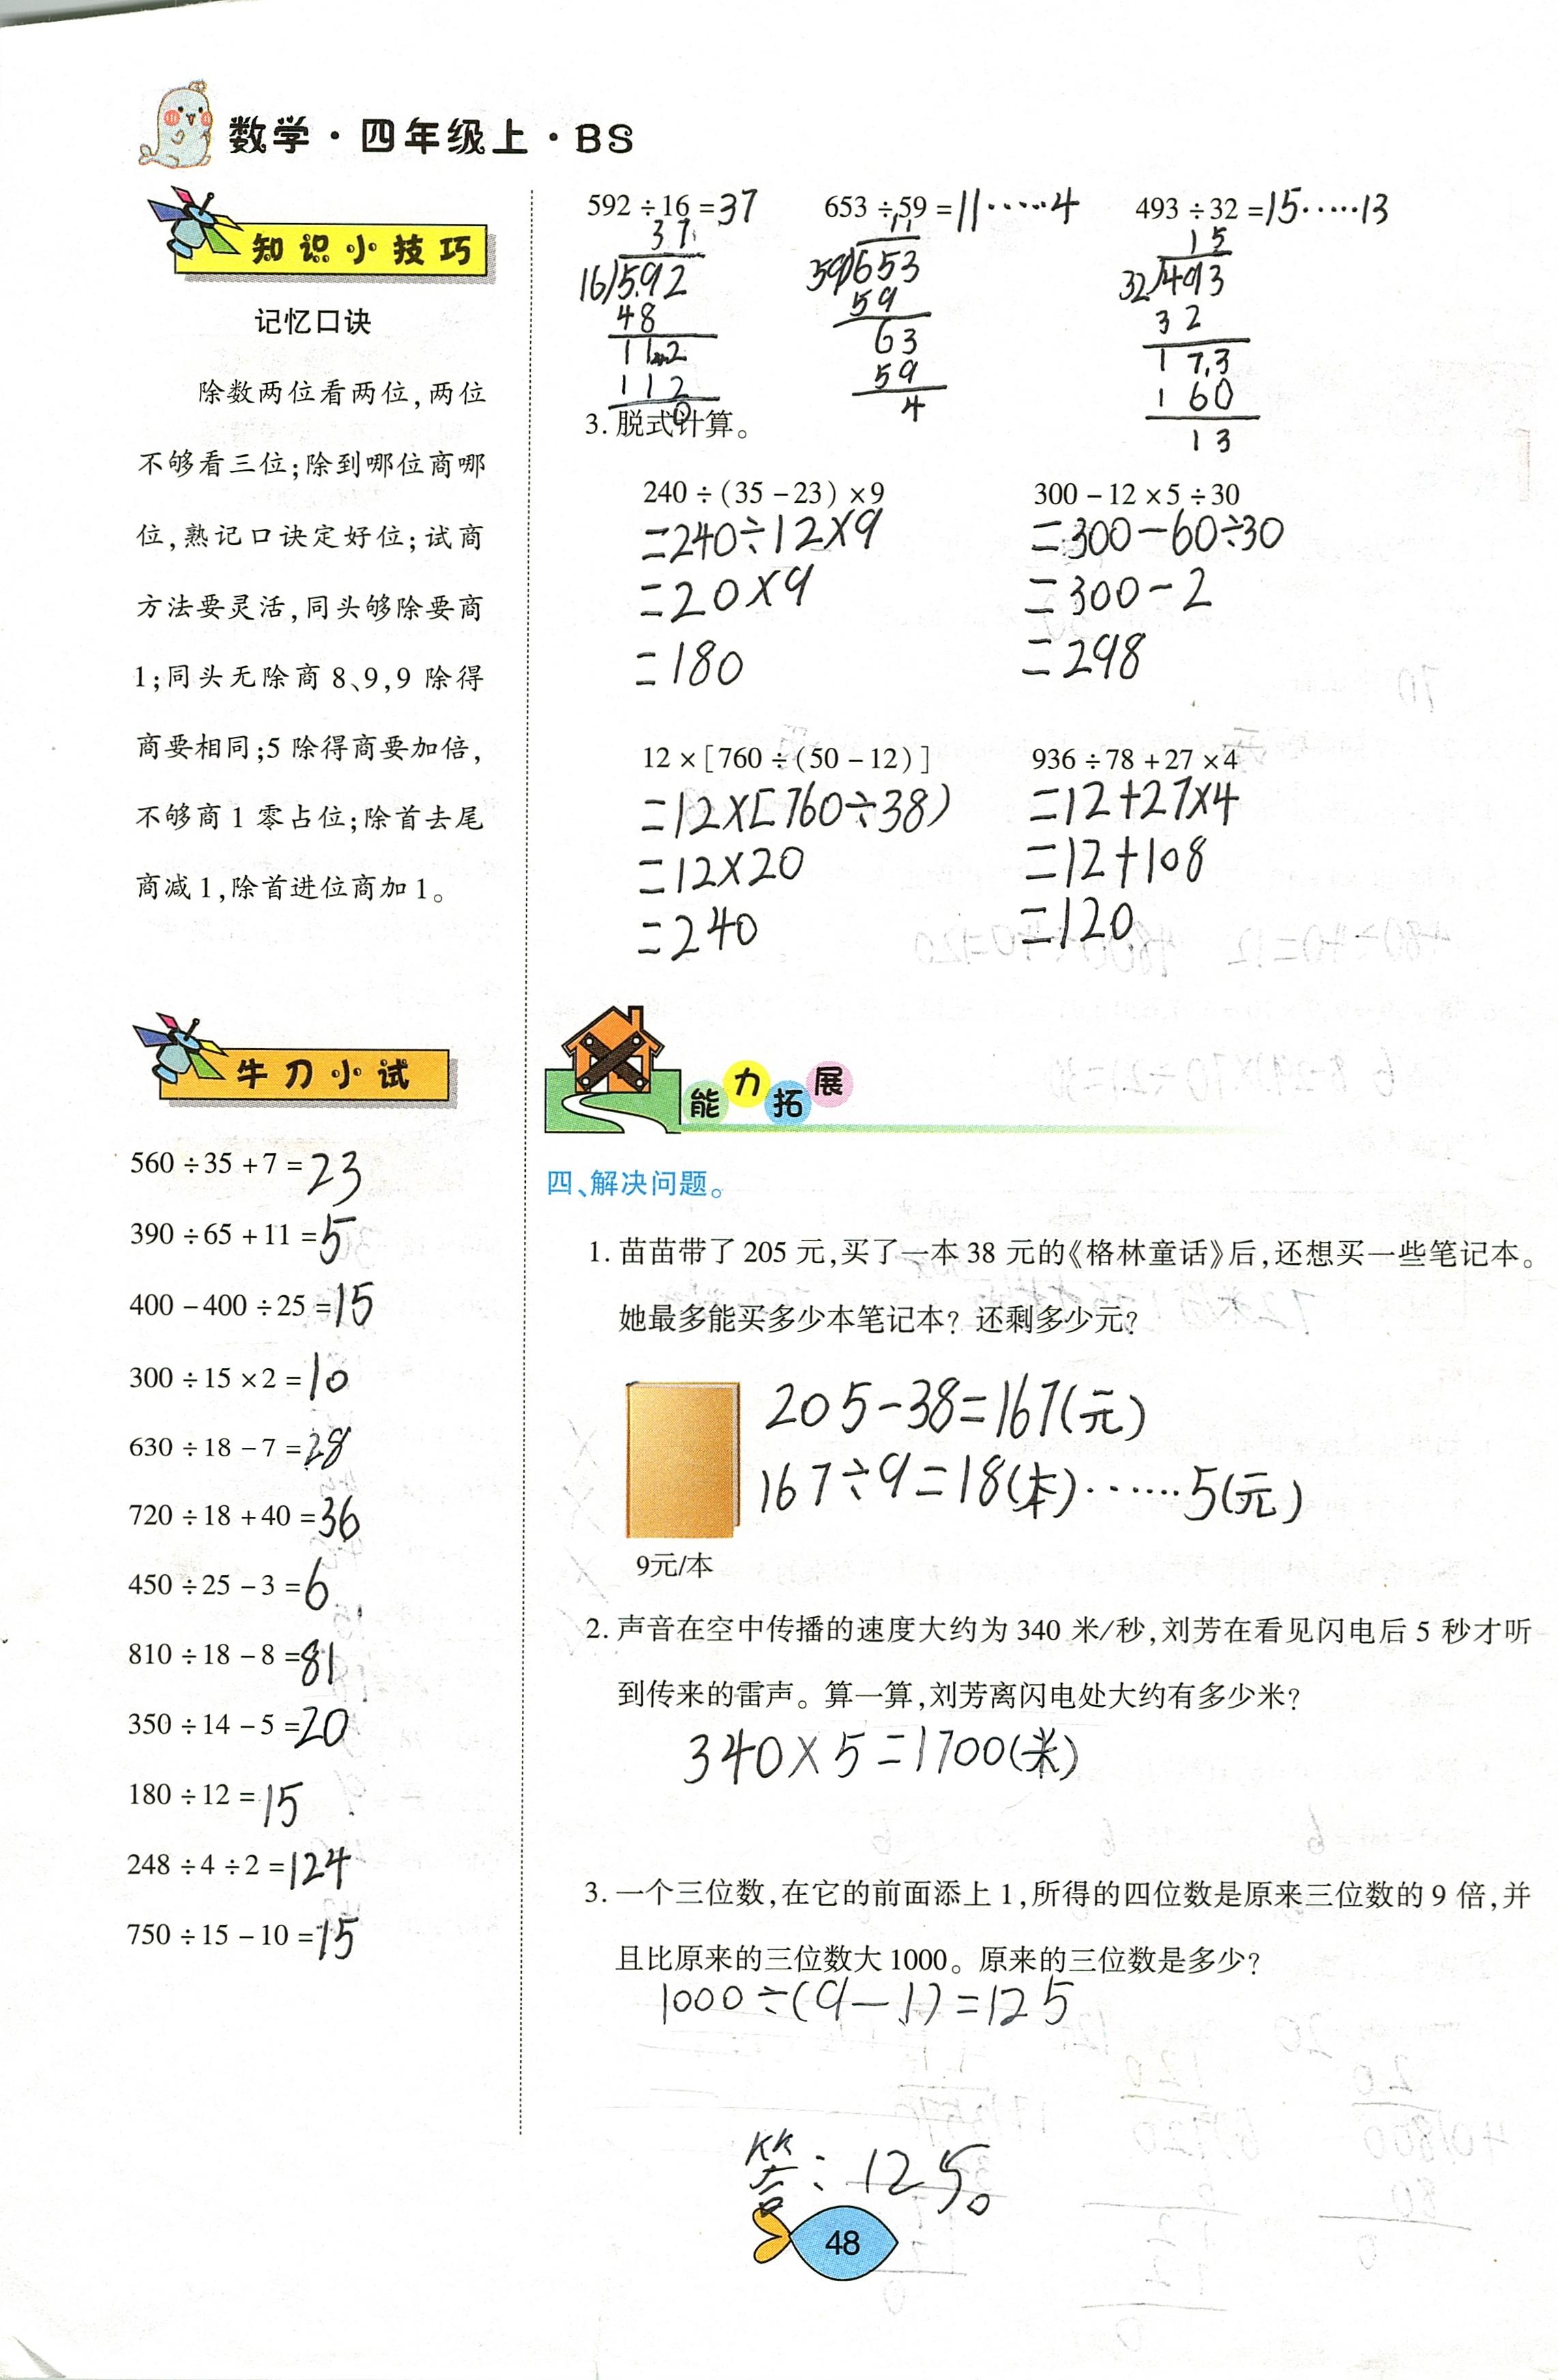 数学·四年级上·BS
知识小技巧
记忆口诀
除数两位看两位,两位
不够看三位;除到哪位商哪
位,熟记口诀定好位;试商
方法要灵活,同头够除要商
1;同头无除商8、9,9除得
商要相同;5除得商要加倍,
不够商1零占位;除首去尾
商减1,除首进位商加1。
牛刀小试
560÷35+7=23
390÷65+11=5
400-400÷25=15
300÷15×2=10
630÷18-7=28
720÷18+40=36
450÷25-3=6
810÷18-8=81
350÷14-5=20
180÷12=15
248÷4÷2=124
750÷15-10=15
592÷16=37 653÷59=11……4 493÷32=15……13
37 11 15
16)592 59)653 32)493
48 59 32
112 63 173
112 59 160
0 4 13
3.脱式计算。
240÷(35-23)×9 300-12×5÷30
=240÷12×9 =300-60÷30
=20×9 =300-2
=180 =298
12×[760÷(50-12)] 936÷78+27×4
=12×[760÷38) =12+27×4
=12×20 =12+108
=240 =120
能力拓展
四、解决问题。
1.苗苗带了205元,买了一本38元的《格林童话》后,还想买一些笔记本。
她最多能买多少本笔记本?还剩多少元?
205-38=167(元)
167÷9=18(本)……5(元)
9元/本
2.声音在空中传播的速度大约为340米/秒,刘芳在看见闪电后5秒才听
到传来的雷声。算一算,刘芳离闪电处大约有多少米?
340×5=1700(米)
3.一个三位数,在它的前面添上1,所得的四位数是原来三位数的9倍,并
且比原来的三位数大1000。原来的三位数是多少?
1000÷(9-1)=125
答:125。
48